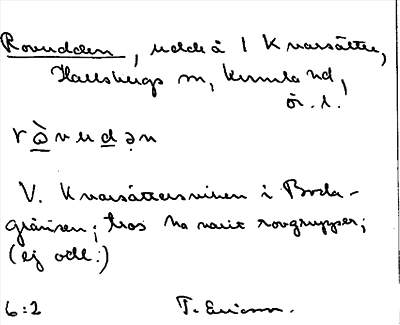 Rovudden, udde å l Kvarsätter,
Hallsbergs sn, Kumla hd,
ör. l.
ròvudən
V. Kvarsättersviken i Boda-
gränsen; tros ha varit rovgruppser;
(ej odl.)
6:2 T. Ericsson.